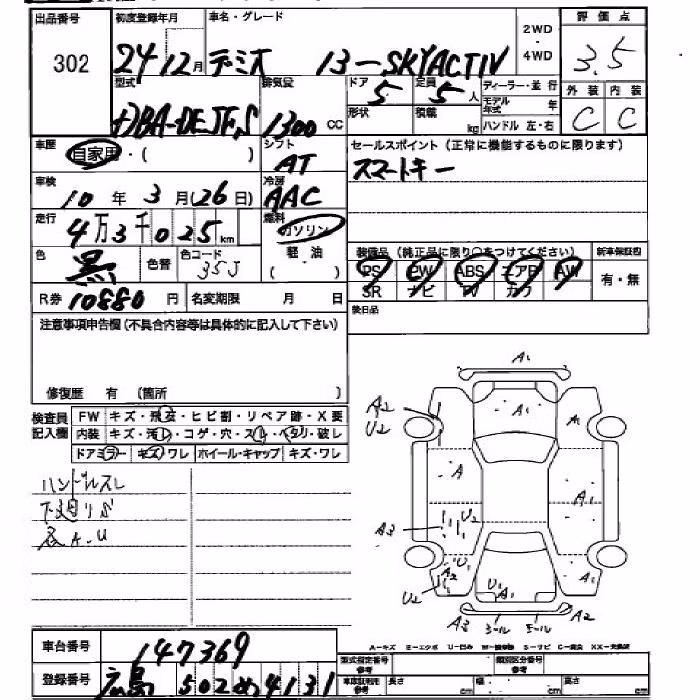 出品番号
302
初度登録年月
24 12 月
車名・グレード
デミオ 13-SKYACTIV
2WD
・
4WD
評価点
3.5
型式
DBA-DEJFS
排気量
1300 cc
ドア
5
定員
5 人
形状
積載
kg
ディーラー・並行
モデル年式 年
ハンドル 左・右
外装 内装
C C
車歴
自家用・( )
シフト
AT
セールスポイント (正常に機能するものに限ります)
スマートキー
車検
10 年 3 月(26 日)
冷房
AAC
走行
4万3千025 km
燃料
ガソリン
軽・油
( ・ )
色
黒
色替
色コード
35J
装備品 (純正品に限り○をつけてください)
PS PW ABS エアB AW
SR ナビ TV カワ
新車保証書
有・無
R券 10880 円
名変期限 月 日
後日品
注意事項申告欄(不具合内容等は具体的に記入して下さい)
修復歴 有 (箇所 )
検査員記入欄
FW キズ・飛石・ヒビ割・リペア跡・X要
内装 キズ・汚レ・コゲ・穴・スレ・ヘタリ・破レ
ドアミラー キズ・ワレ ホイール・キャップ キズ・ワレ
ハンドルスレ
下廻りS
各A・U
A1
A2
U2
A1
A1
A
A1
A3
U2
A2
U2
U1
A1
A1
A3
A2
A-キズ E-エクボ U-凹み
車台番号
147369
登録番号
広島 502 め 4131
型式指定番号
参考
類別区分番号
参考
長さ cm
幅 cm
高さ cm